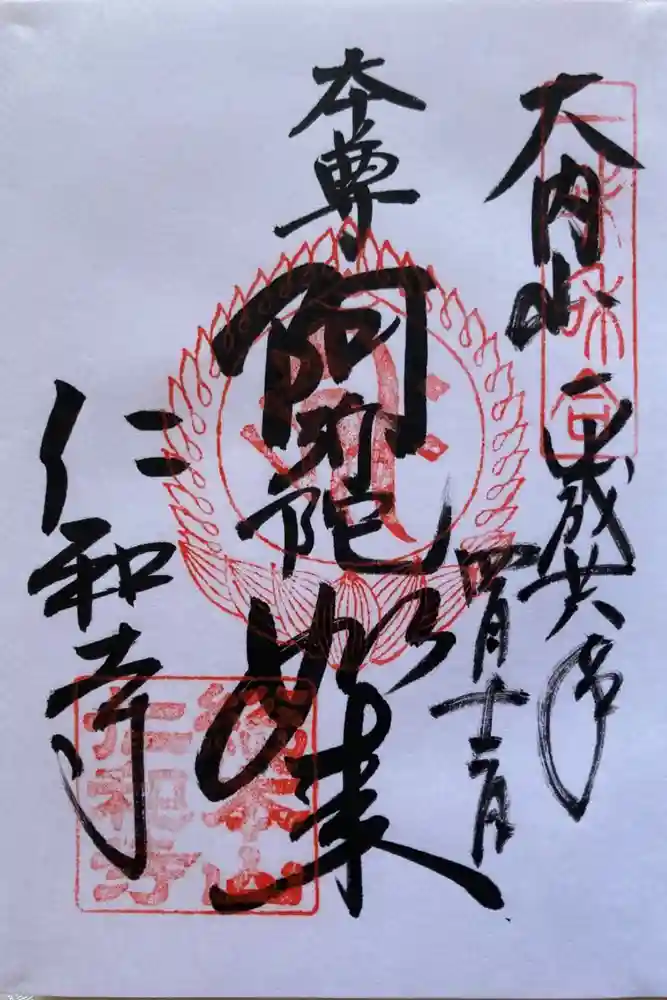 大内山
平成
年
四月十
本尊
阿弥陀如来
仁和寺
一味和合
總本山
仁和寺